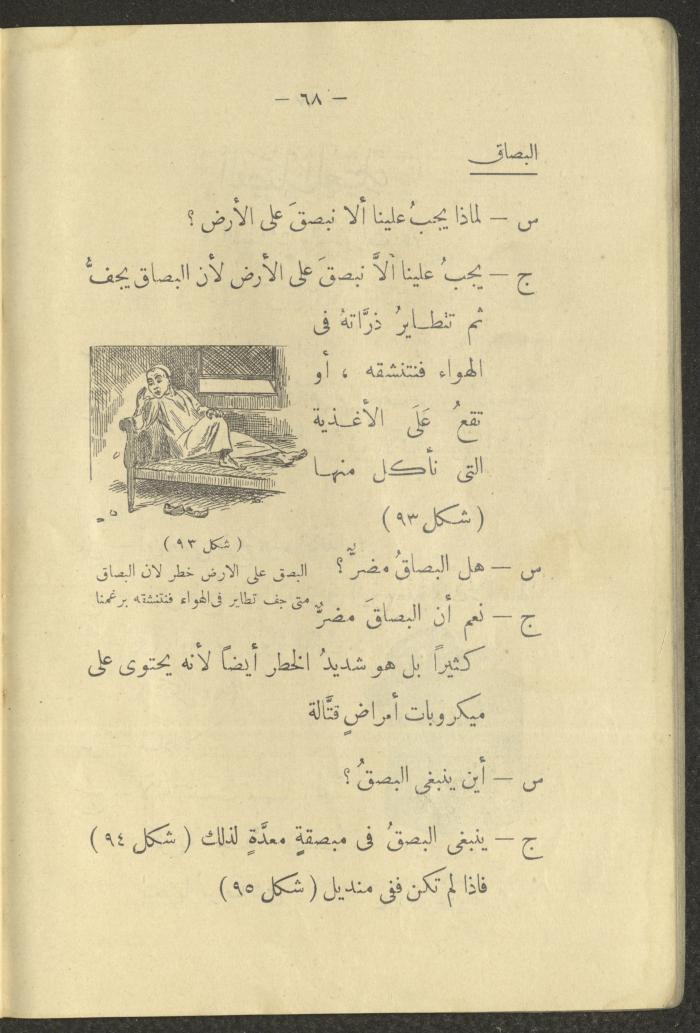 — ٦٨ —
البصاق
س — لماذا يجبُ علينا ألا نبصقَ على الأرض ؟
ج — يجبُ علينا ألاَّ نبصقَ على الأرض لأن البصاق يجفُّ
ثم تتطايرُ ذرَّاتهُ فى
الهواء فنتنشقه ، أو
تقعُ عَلَى الأغذية
التى نأكل منها
( شكل ٩٣ )
( شكل ٩٣ )
البصق على الارض خطر لان البصاق
متى جف تطاير فى الهواء فنتنشقه برغمنا
س — هل البصاقُ مضرٌّ ؟
ج — نعم أن البصاقَ مضرٌّ
كثيراً بل هو شديدُ الخطر أيضاً لأنه يحتوى على
ميكروبات أمراضٍ قتَّالة
س — أين ينبغى البصقُ ؟
ج — ينبغى البصقُ فى مبصقةٍ معدَّةٍ لذلك ( شكل ٩٤ )
فاذا لم تكن ففى منديل ( شكل ٩٥ )